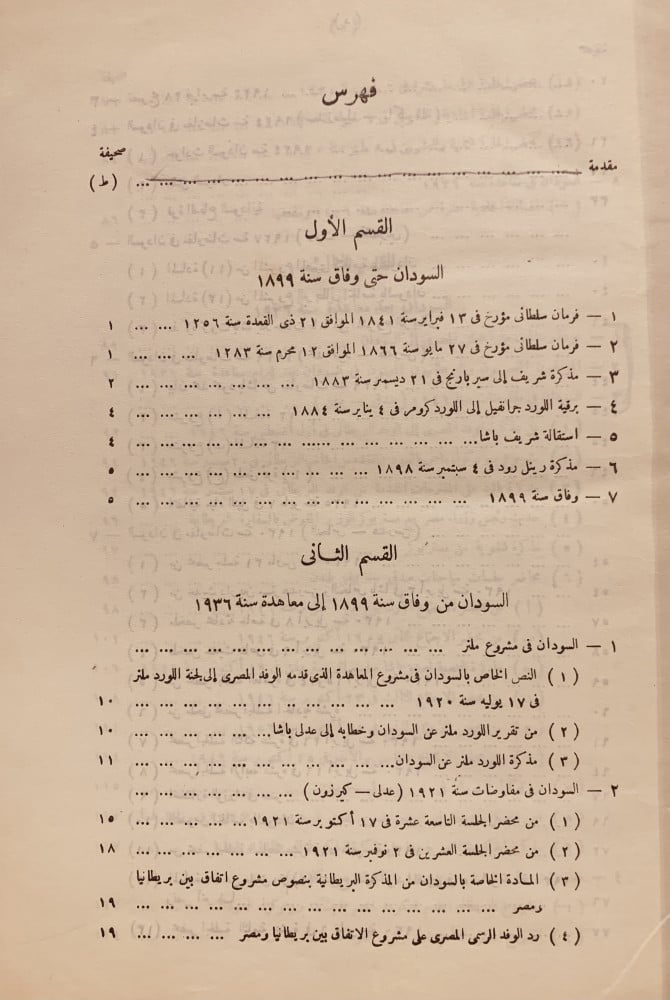 فهرس
صحيفة
مقدمة ... ... ... ... ... ... ... ... ... ... ... ... ... (ط)
القسم الأول
السودان حتى وفاق سنة ١٨٩٩
١ — فرمان سلطانى مؤرخ فى ١٣ فبراير سنة ١٨٤١ الموافق ٢١ ذى القعدة سنة ١٢٥٦ ... ... ١
٢ — فرمان سلطانى مؤرخ فى ٢٧ مايو سنة ١٨٦٦ الموافق ١٢ محرم سنة ١٢٨٣ ... ... ... ١
٣ — مذكرة شريف إلى سير بارنج فى ٢١ ديسمبر سنة ١٨٨٣ ... ... ... ... ... ... ... ٢
٤ — برقية اللورد جرانفيل إلى اللورد كرومر فى ٤ يناير سنة ١٨٨٤ ... ... ... ... ... ... ٤
٥ — استقالة شريف باشا... ... ... ... ... ... ... ... ... ... ... ... ... ٤
٦ — مذكرة رينل رود فى ٤ سبتمبر سنة ١٨٩٨ ... ... ... ... ... ... ... ... ... ٥
٧ — وفاق سنة ١٨٩٩ ... ... ... ... ... ... ... ... ... ... ... ... ... ٥
القسم الثانى
السودان من وفاق سنة ١٨٩٩ إلى معاهدة سنة ١٩٣٦
١ — السودان فى مشروع ملنر ... ... ... ... ... ... ... ... ... ... ... ... ...
(١) النص الخاص بالسودان فى مشروع المعاهدة الذى قدمه الوفد المصرى إلى لجنة اللورد ملنر
فى ١٧ يوليه سنة ١٩٢٠ ... ... ... ... ... ... ... ... ... ... ... ١٠
(٢) من تقرير اللورد ملنر عن السودان وخطابه إلى عدلى باشا... ... ... ... ... ... ١٠
(٣) مذكرة اللورد ملنر عن السودان... ... ... ... ... ... ... ... ... ... ١١
٢ — السودان فى مفاوضات سنة ١٩٢١ (عدلى — كيرزون) ... ... ... ... ... ... ...
(١) من محضر الجلسة التاسعة عشرة فى ١٧ أكتوبر سنة ١٩٢١ ... ... ... ... ١٥
(٢) من محضر الجلسة العشرين فى ٢ نوفمبر سنة ١٩٢١ ... ... ... ... ... ... ١٨
(٣) المادة الخاصة بالسودان من المذكرة البريطانية بنصوص مشروع اتفاق بين بريطانيا
ومصر ... ... ... ... ... ... ... ... ... ... ... ... ... ... ١٩
(٤) رد الوفد الرسمى المصرى على مشروع الاتفاق بين بريطانيا ومصر ... ... ... ... ١٩